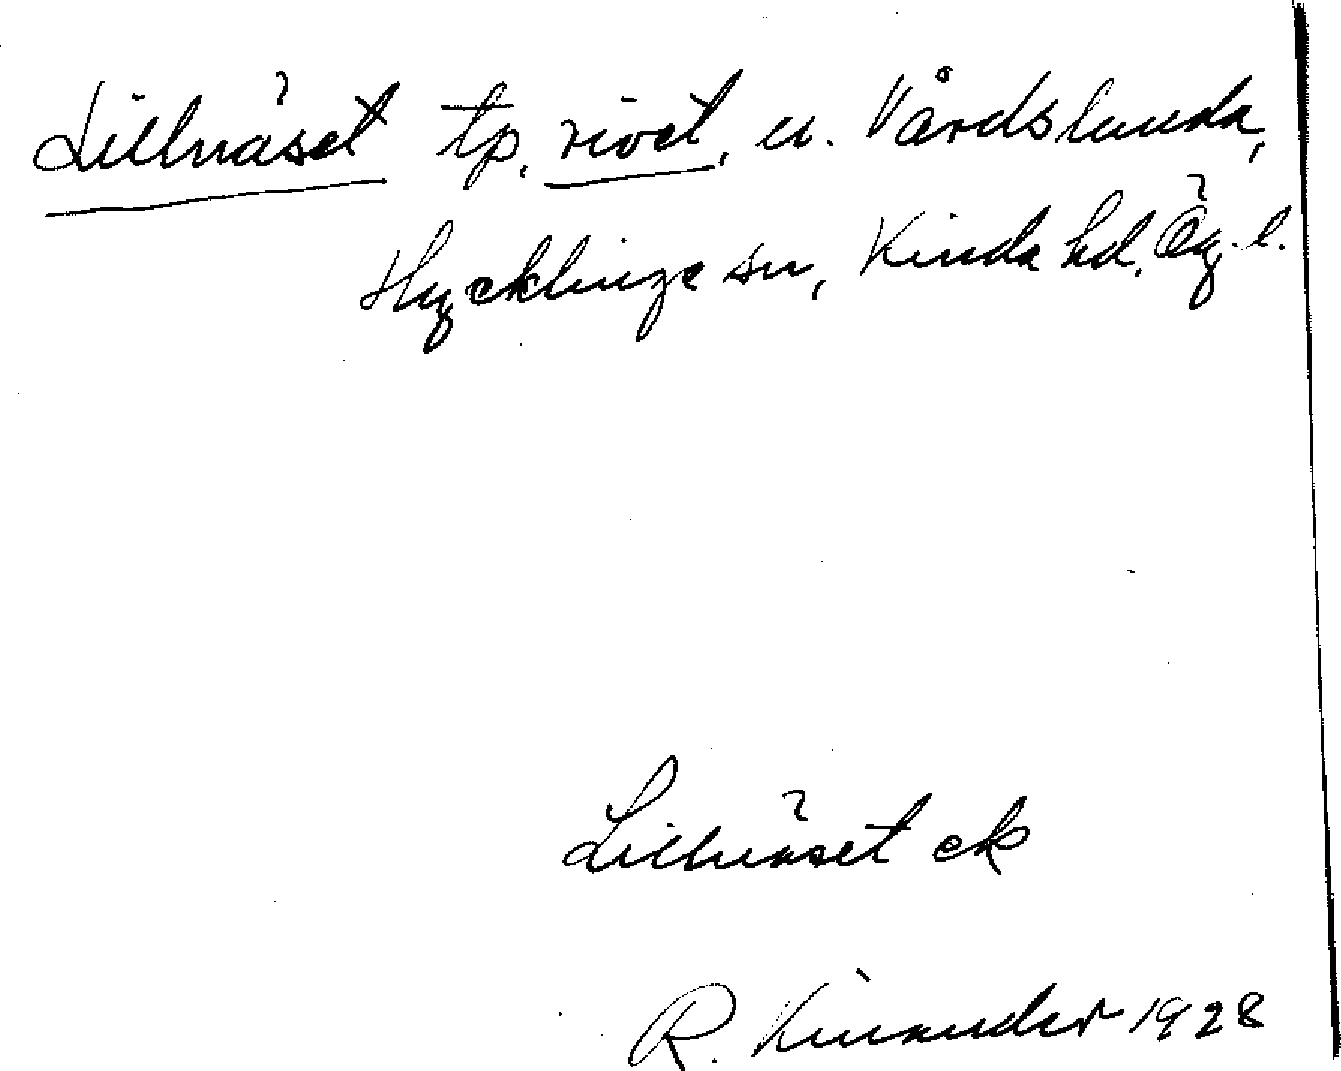 Lillnäset tp. rivet, u. Vårdslunda,
Hycklinge sn, Kinda hd. Ög. l.
Lillnäset ek
R. Kinander 1928